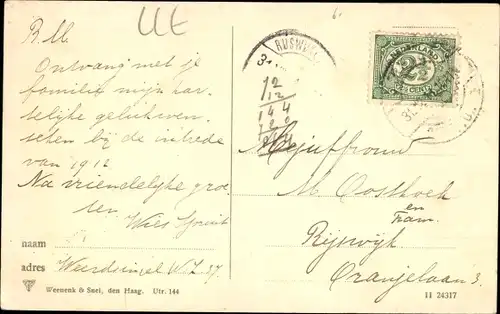 Ut
R.M.
Ontvang met je
familie mijn har-
telijke gelukwen-
schen bij de intrede
van 1912
Na vriendelijke groe-
ten
Wies
naam
adres Weerdsingel W.Z. 37.
Weenenk & Snel, den Haag. Utr. 144
RIJSWIJK
31
12
12
144
NEDERLAND
2½
CENT
Mejuffrouw
M. Oosthoek
en
Fam.
Rijswijk
Oranjelaan 3.
11 24317